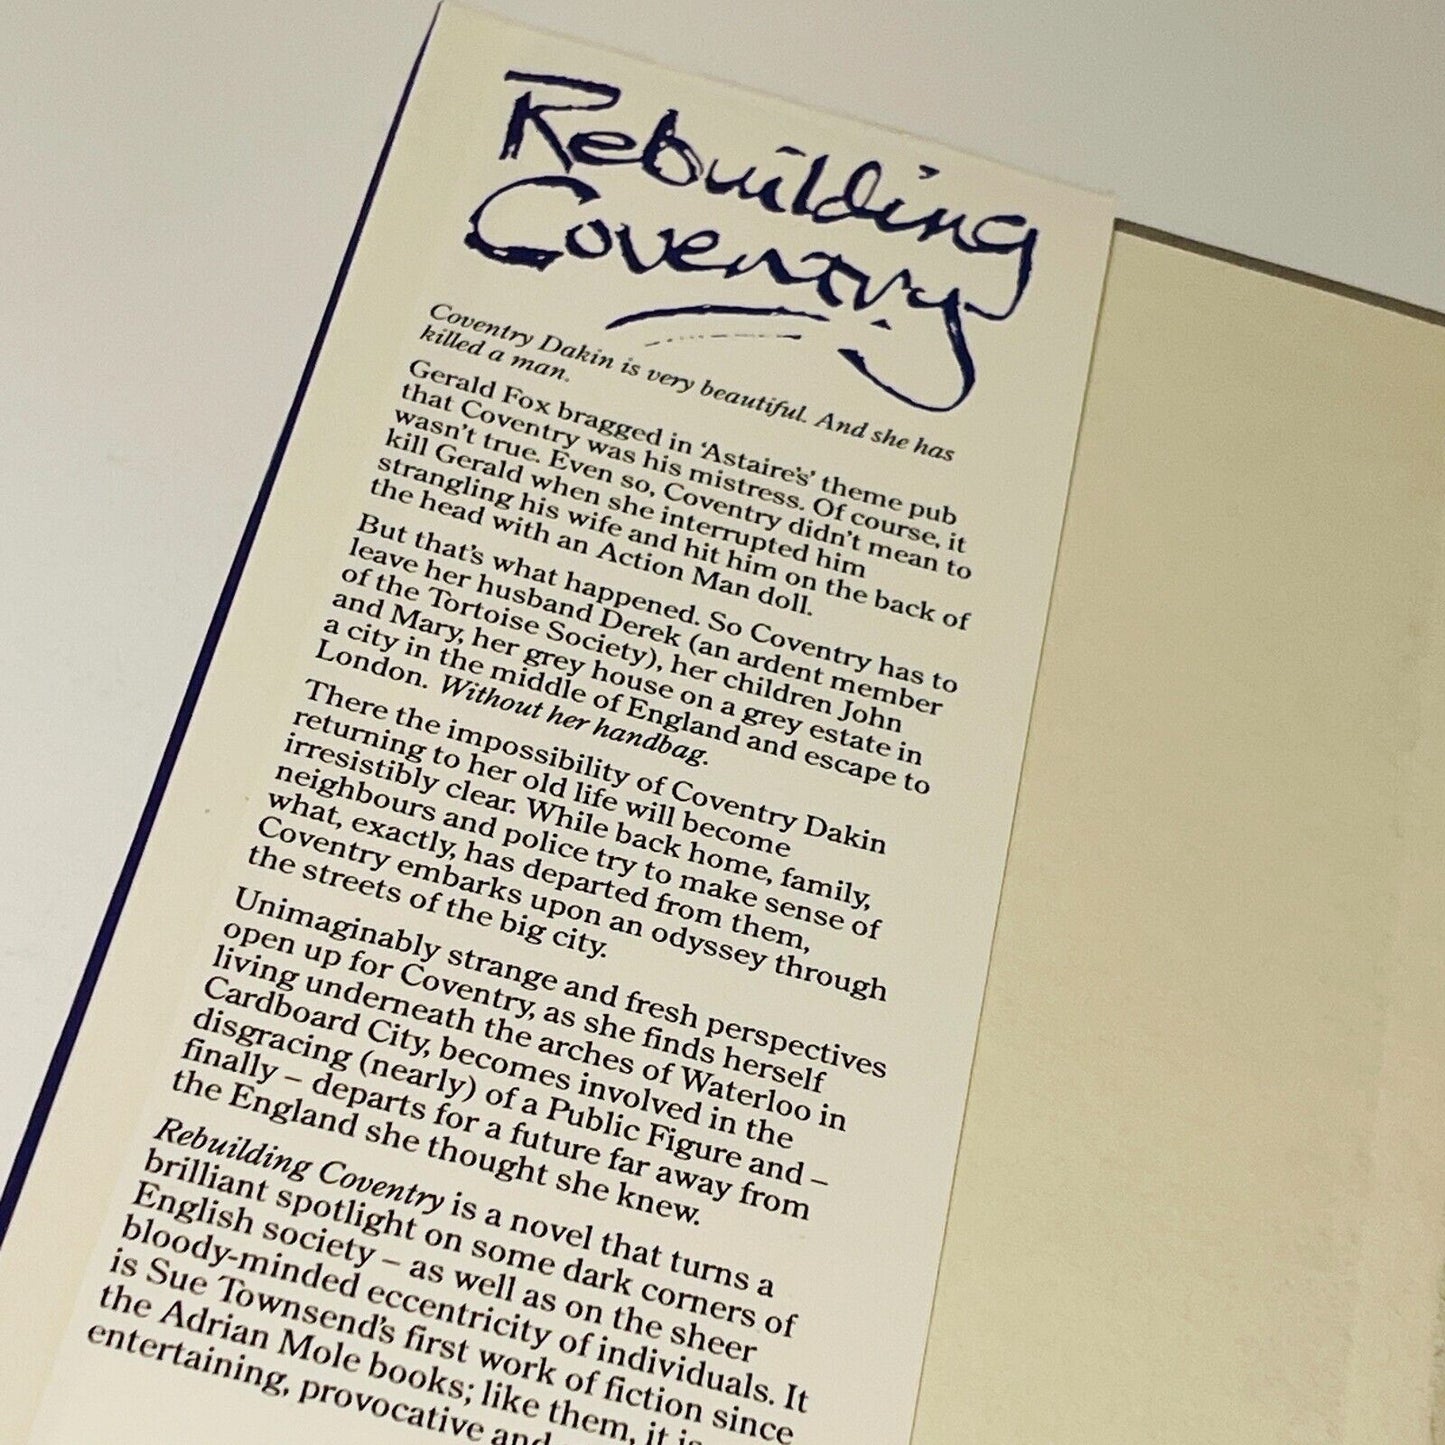 Rebuilding
Coventry
Coventry Dakin is very beautiful. And she has
killed a man.
Gerald Fox bragged in ‘Astaire's’ theme pub
that Coventry was his mistress. Of course, it
wasn't true. Even so, Coventry didn't mean to
kill Gerald when she interrupted him
strangling his wife and hit him on the back of
the head with an Action Man doll.
But that's what happened. So Coventry has to
leave her husband Derek (an ardent member
of the Tortoise Society), her children John
and Mary, her grey house on a grey estate in
a city in the middle of England and escape to
London. Without her handbag.
There the impossibility of Coventry Dakin
returning to her old life will become
irresistibly clear. While back home, family,
neighbours and police try to make sense of
what, exactly, has departed from them,
Coventry embarks upon an odyssey through
the streets of the big city.
Unimaginably strange and fresh perspectives
open up for Coventry, as she finds herself
living underneath the arches of Waterloo in
Cardboard City, becomes involved in the
disgracing (nearly) of a Public Figure and –
finally – departs for a future far away from
the England she thought she knew.
Rebuilding Coventry is a novel that turns a
brilliant spotlight on some dark corners of
English society – as well as on the sheer
bloody-minded eccentricity of individuals. It
is Sue Townsend's first work of fiction since
the Adrian Mole books; like them, it is
entertaining, provocative and